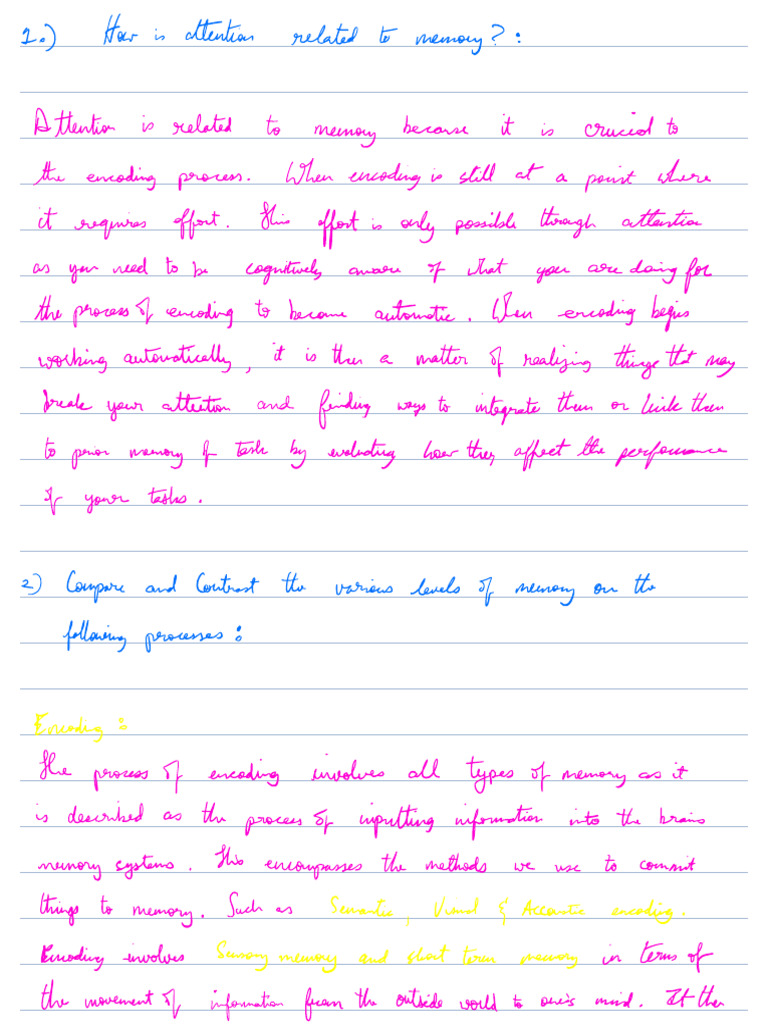 1.) How is attention related to memory? :
Attention is related to memory because it is crucial to
the encoding process. When encoding is still at a point where
it requires effort. This effort is only possible through attention
as you need to be cognitively aware of what you are doing for
the process of encoding to become automatic. When encoding begins
working automatically, it is then a matter of realizing things that may
break your attention and finding ways to integrate them or link them
to prior memory of task by evaluating how they affect the performance
of your tasks.
2) Compare and Contrast the various levels of memory on the
following processes :
Encoding :
The process of encoding involves all types of memory as it
is described as the process of inputting information into the brains
memory systems. This encompasses the methods we use to commit
things to memory. Such as Semantic, Visual & Accoustic encoding.
Encoding involves Sensory memory and short term memory in terms of
the movement of information from the outside world to one's mind. It then